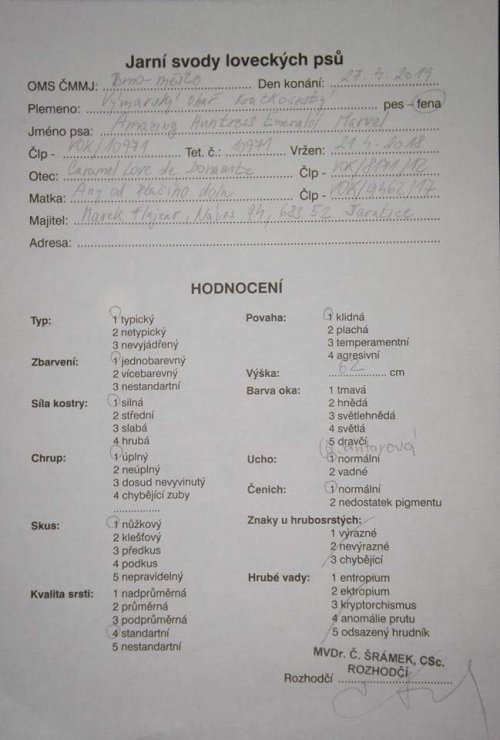 Jarní svody loveckých psů
OMS ČMMJ: Brno-město Den konání: 27.4.2019
Plemeno: Výmarský ohař krátkosrstý pes – fena
Jméno psa: Amazing Huntress Emerald Marvel
Člp - VOK/10971 Tet. č.: 10971 Vržen: 21.4.2018
Otec: Caramel Love de Člp - VOK/
Matka: Any od Člp - VOK/9462/17
Majitel: Marek Náves 94,
Adresa:
HODNOCENÍ
Typ: 1 typický
2 netypický
3 nevyjádřený
Zbarvení: 1 jednobarevný
2 vícebarevný
3 nestandartní
Síla kostry: 1 silná
2 střední
3 slabá
4 hrubá
Chrup: 1 úplný
2 neúplný
3 dosud nevyvinutý
4 chybějící zuby
Skus: 1 nůžkový
2 klešťový
3 předkus
4 podkus
5 nepravidelný
Kvalita srsti: 1 nadprůměrná
2 průměrná
3 podprůměrná
4 standartní
5 nestandartní
Povaha: 1 klidná
2 plachá
3 temperamentní
4 agresivní
Výška: 62 cm
Barva oka: 1 tmavá
2 hnědá
3 světlehnědá
4 světlá
5 dravčí
6 jantarová
Ucho: 1 normální
2 vadné
Čenich: 1 normální
2 nedostatek pigmentu
Znaky u hrubosrstých:
1 výrazné
2 nevýrazné
3 chybějící
Hrubé vady: 1 entropium
2 ektropium
3 kryptorchismus
4 anomálie prutu
5 odsazený hrudník
MVDr. Č. ŠRÁMEK, CSc.
ROZHODČÍ
Rozhodčí